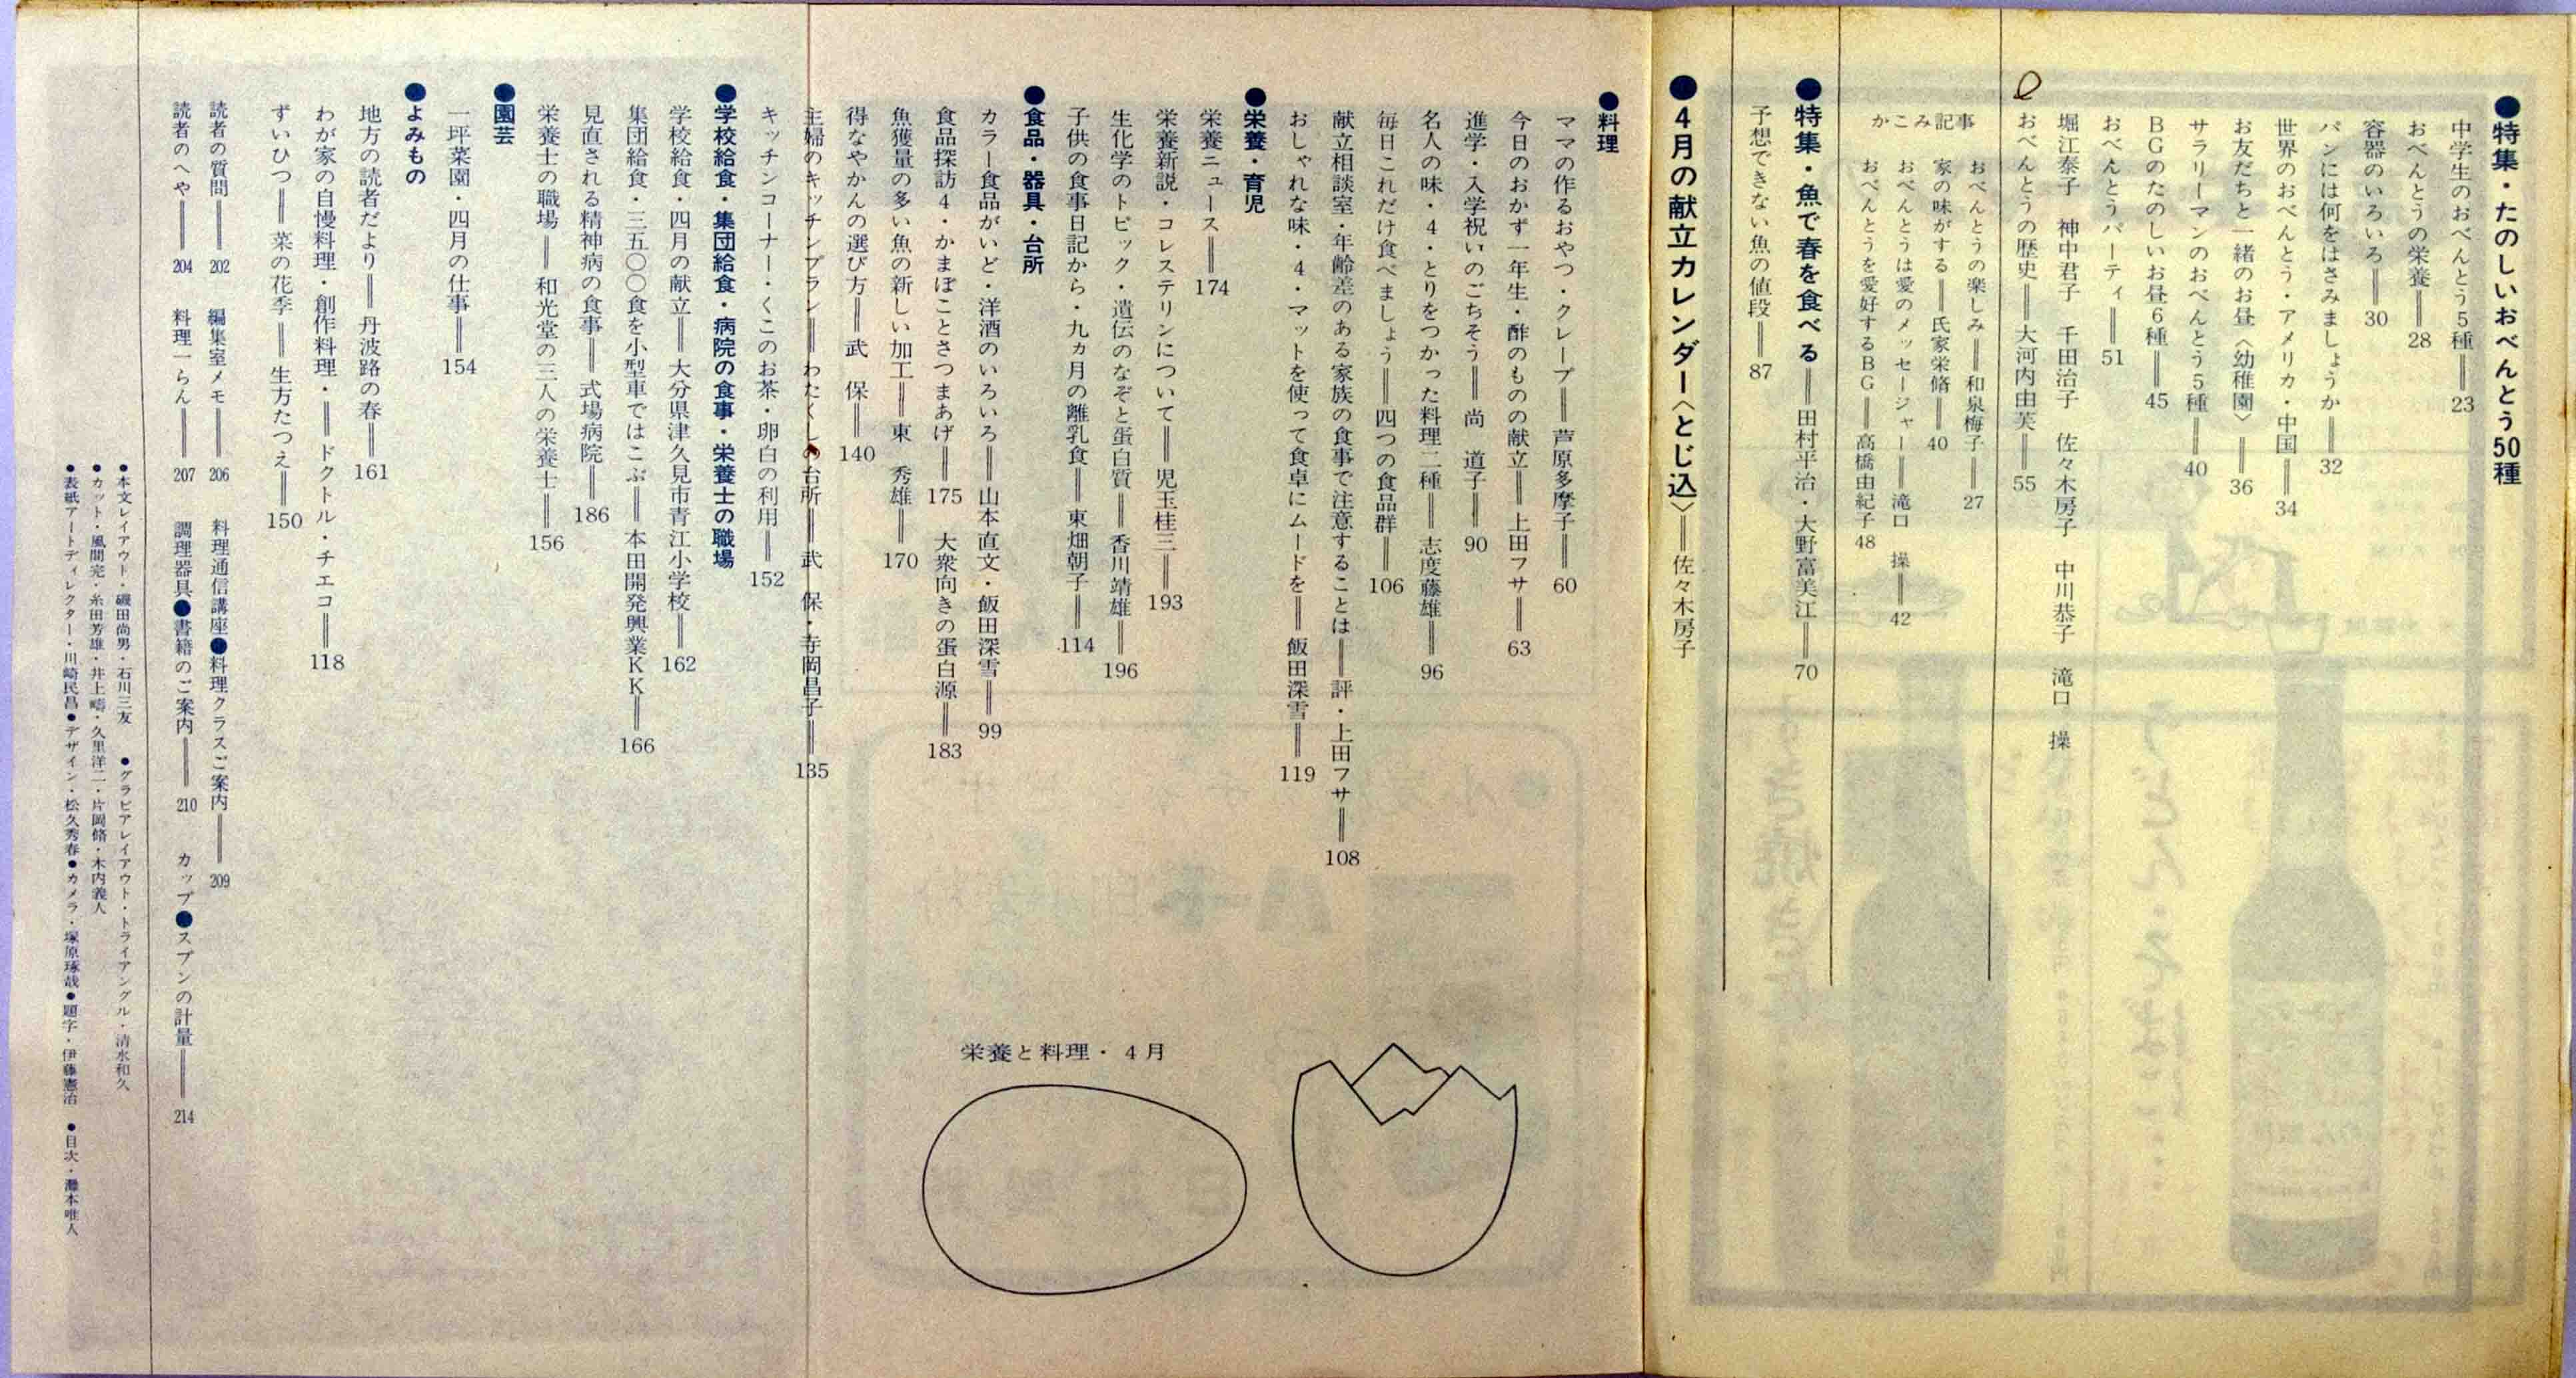 ●特集・たのしいおべんとう50種
中学生のおべんとう5種══23
おべんとうの栄養══28
容器のいろいろ══30
パンには何をはさみましょうか══32
世界のおべんとう・アメリカ・中国══34
お友だちと一緒のお昼〈幼稚園〉══36
サラリーマンのおべんとう5種══40
BGのたのしいお昼6種══45
おべんとうパーティ══51
堀江泰子 神中君子 千田治子 佐々木房子 中川恭子 滝口 操
おべんとうの歴史══大河内由芙══55
かこみ記事
おべんとうの楽しみ══和泉梅子══27
家の味がする══氏家栄脩══40
おべんとうは愛のメッセージャー══滝口 操══42
おべんとうを愛好するBG══高橋由紀子 48
●特集・魚で春を食べる══田村平治・大野富美江══70
予想できない魚の値段══87
●4月の献立カレンダー〈とじ込〉══佐々木房子
●料理
ママの作るおやつ・クレープ══芦原多摩子══60
今日のおかず一年生・酢のものの献立══上田フサ══63
進学・入学祝いのごちそう══尚 道子══90
名人の味・4・とりをつかった料理二種══志度藤雄══96
毎日これだけ食べましょう══四つの食品群══106
献立相談室・年齢差のある家族の食事で注意することは══評・上田フサ══108
おしゃれな味・4・マットを使って食卓にムードを══飯田深雪══119
●栄養・育児
栄養ニュース══174
栄養新説・コレステリンについて══児玉桂三══193
生化学のトピック・遺伝のなぞと蛋白質══香川靖雄══196
子供の食事日記から・九ヵ月の離乳食══東畑朝子══114
●食品・器具・台所
カラー食品がいど・洋酒のいろいろ══山本直文・飯田深雪══99
食品探訪4・かまぼことさつまあげ══175 大衆向きの蛋白源══183
魚獲量の多い魚の新しい加工══東 秀雄══170
得なやかんの選び方══武 保══140
主婦のキッチンプラン══わたくしの台所══武 保・寺岡昌子══135
キッチンコーナー・くこのお茶・卵白の利用══152
●学校給食・集団給食・病院の食事・栄養士の職場
学校給食・四月の献立══大分県津久見市青江小学校══162
集団給食・三五〇〇食を小型車ではこぶ══本田開発興業KK══166
見直される精神病の食事══式場病院══186
栄養士の職場══和光堂の三人の栄養士══156
●園芸
一坪菜園・四月の仕事══154
●よみもの
地方の読者だより══丹波路の春══161
わが家の自慢料理・創作料理・══ドクトル・チエコ══118
ずいひつ══菜の花季══生方たつえ══150
読者の質問══202 編集室メモ══206 料理通信講座●料理クラスご案内══209
読者のへや══204 料理一らん══207 調理器具●書籍のご案内══210 カップ●スプンの計量══214
●本文レイアウト・磯田尚男・石川三友 ●グラビアレイアウト・トライアングル・清水和久
●カット・風間完・糸田芳雄・井上疇・久里洋二・片岡脩・木内義人
●表紙アートディレクター・川崎民昌●デザイン・松久秀春●カメラ・塚原琢哉●題字・伊藤憲治 ●目次・灘本唯人
栄養と料理・4月